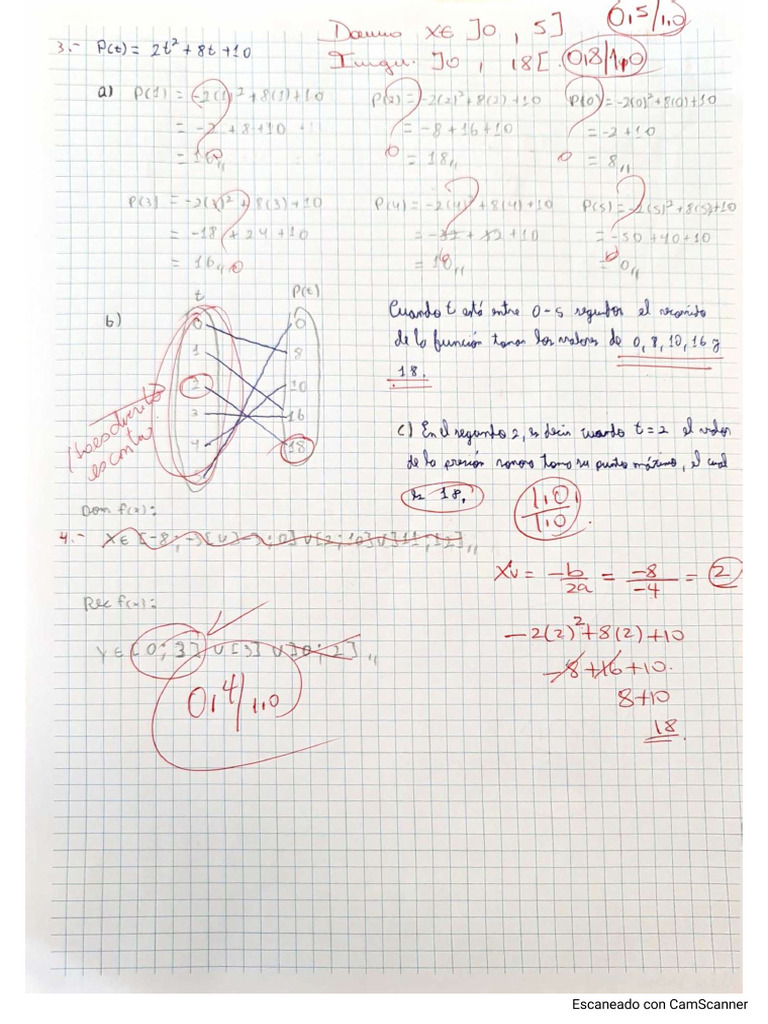 Domino XE ]0 , 5]
0,5/1,0
3.- P(t) = 2t² + 8t + 10
Imgn. ]0 , 18[.
0,8/1,0
a) P(1) = -2(1)² + 8(1) + 10
= -2 + 8 + 10
= 16,,
P(2) = -2(2)² + 8(2) + 10
= -8 + 16 + 10
= 18,,
P(0) = -2(0)² + 8(0) + 10
= -2 + 10
= 8,,
P(3) = -2(3)² + 8(3) + 10
= -18 + 24 + 10
= 16,,
P(4) = -2(4)² + 8(4) + 10
= -32 + 32 + 10
= 10,,
P(5) = -2(5)² + 8(5) + 10
= -50 + 40 + 10
= 0,,
b)
t P(t)
0 0
1 8
2 10
3 16
4 18
Cuando t está entre 0-5 segundos el recorrido
de la función toman los valores de 0, 8, 10, 16 y
18.
c) En el segundo 2, es decir cuando t = 2 el valor
de la presión sonora toma su punto máximo, el cual
es 18.
1,0/1,0.
Dom f(x):
4.-
Xv = -b/2a = -8/-4 = 2
Rec f(x):
-2(2)² + 8(2) + 10
Y ∈ [0; 3] U [3] U ]0; 2],,
-8 + 16 + 10.
0,4/1,0
8 + 10
18.
Escaneado con CamScanner